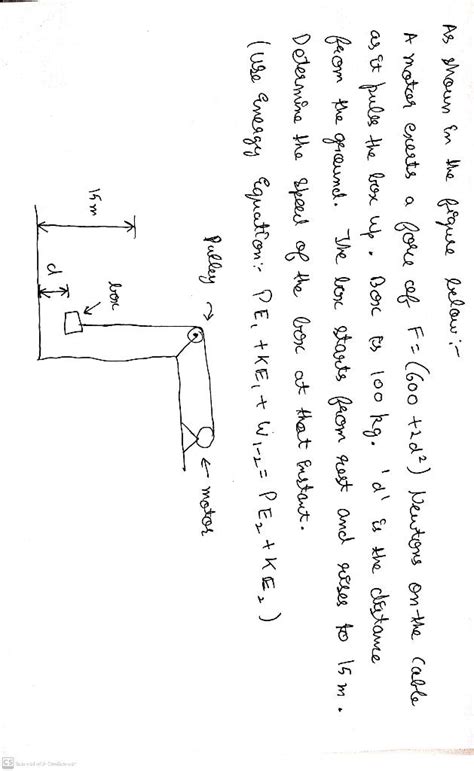 As shown in the figure below:-
A motor exerts a force of F = (600 + 2d²) Newtons on the cable
as it pulls the box up. Box is 100 kg. 'd' is the distance
from the ground. The box starts from rest and rises to 15 m.
Determine the speed of the box at that instant.
(Use Energy Equation:- PE₁ + KE₁ + W₁₋₂ = PE₂ + KE₂)
Pulley
motor
box
15 m
d
CS